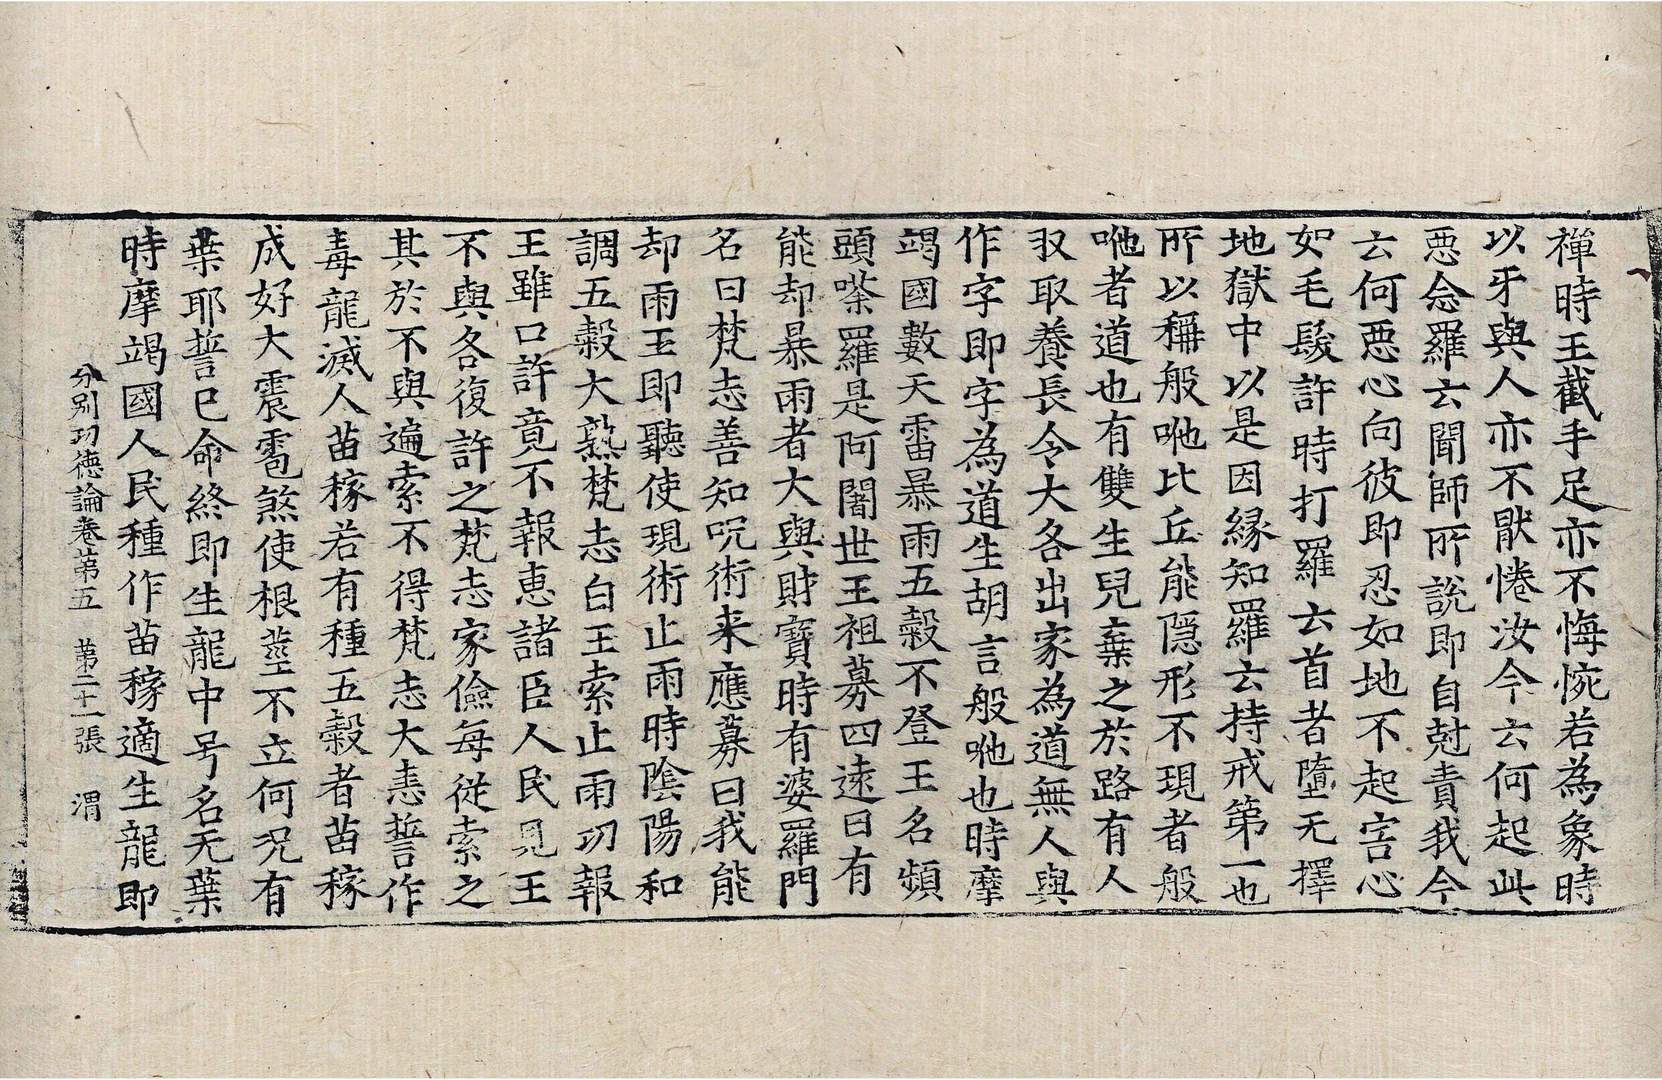 禪時王截手足亦不悔惋若為象時
以牙與人亦不厭惓汝今云何起此
惡念羅云聞師所說即自尅責我今
云何惡心向彼即忍如地不起害心
如毛髮許時打羅云首者墮无擇
地獄中以是因緣知羅云持戒第一也
所以稱般咃比丘能隱形不現者般
咃者道也有雙生兒棄之於路有人
収取養長令大各出家為道無人與
作字即字為道生胡言般咃也時摩
竭國數天雷暴雨五穀不登王名頻
頭㗚羅是阿闍世王祖募四遠曰有
能却暴雨者大與財寶時有婆羅門
名曰梵志善知呪術来應募曰我能
却雨王即聽使現術止雨時陰陽和
調五穀大熟梵志白王索止雨功報
王雖口許竟不報恵諸臣人民見王
不與各復許之梵志家儉每從索之
其於不與遍索不得梵志大恚誓作
毒龍滅人苗稼若有種五穀者苗稼
成好大震雹煞使根莖不立何况有
葉耶誓已命終即生龍中号名无葉
時摩竭國人民種作苗稼適生龍即
分別功德論卷第五　第二十一張　渭